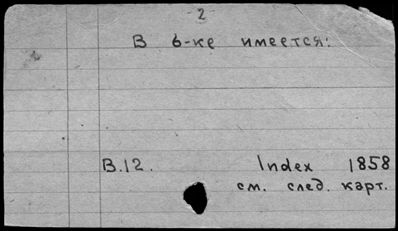 - 2 -
В б-ке имеется:
B.12. Index 1858
см. след. карт.